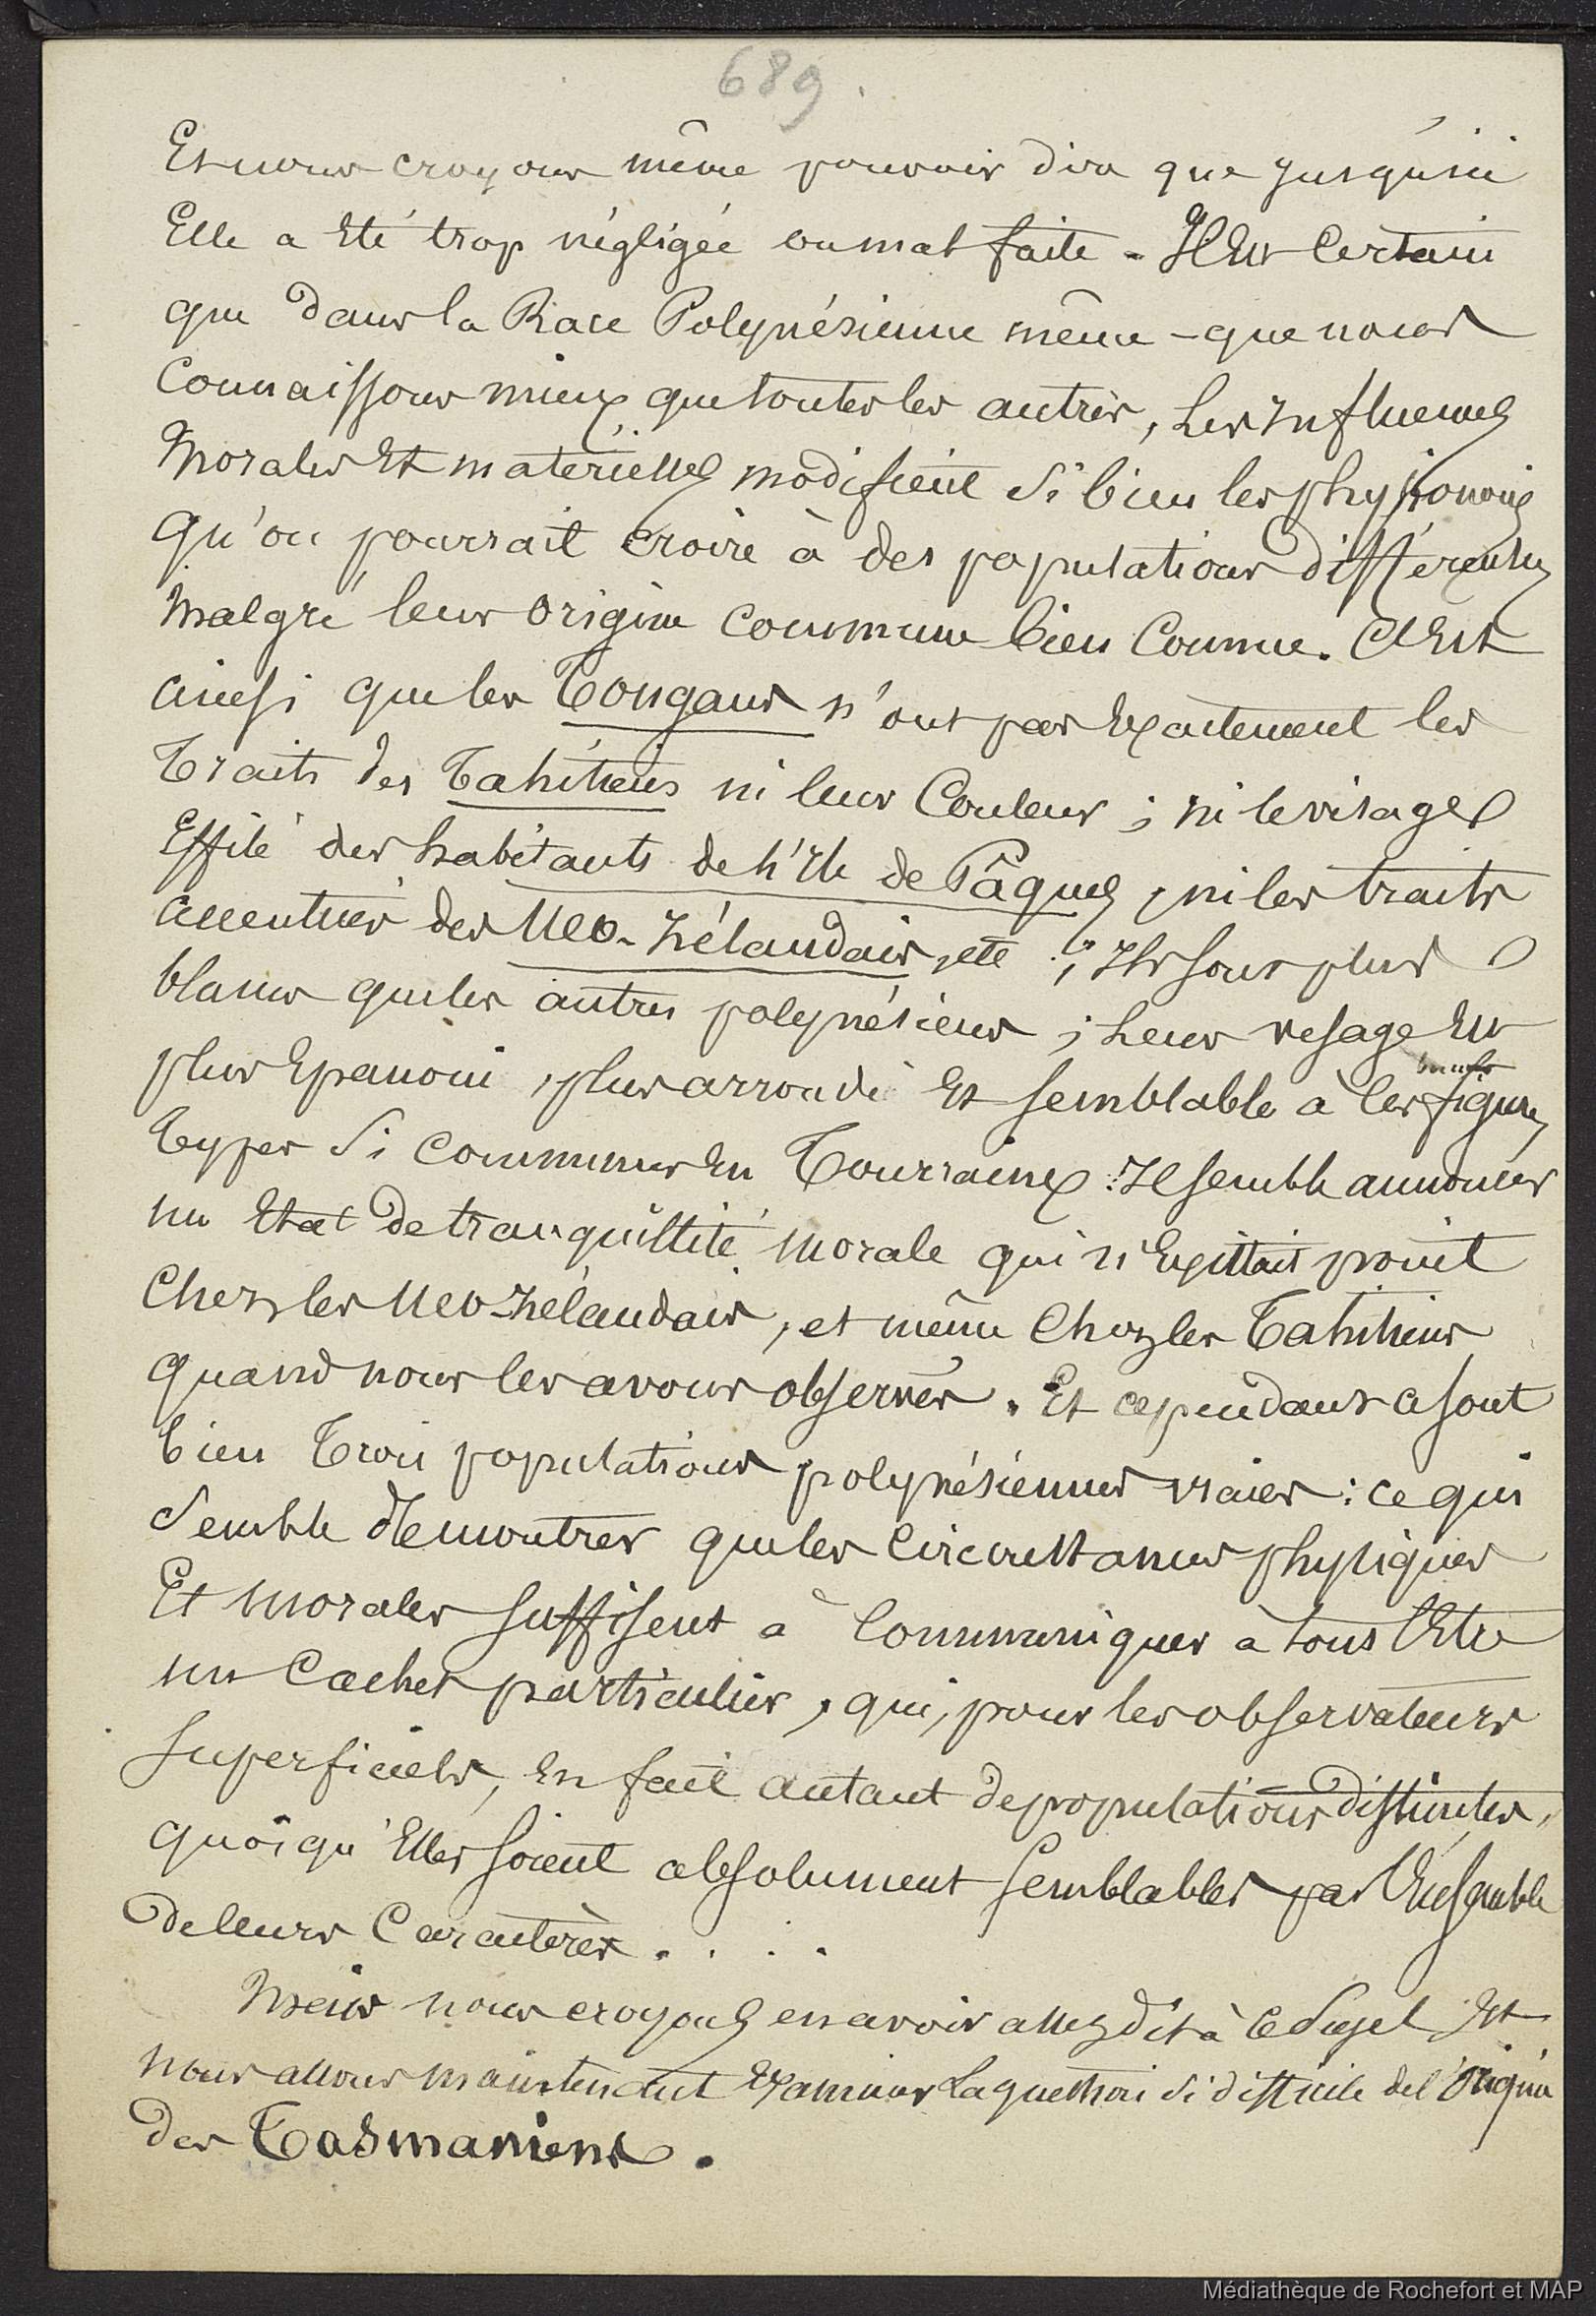 689.
Et nous croyons même pouvoir dire que jusqu'ici
Elle a Eté trop négligée ou mal faite. Il Est Certain
que dans la Race Polynésienne même - que nous
Connaissons mieux que toutes les autres, Les Influences
Morales Et matérielles modifient si bien les physionomies
qu'on pourrait croire à des populations différentes
Malgré leur Origine Commune bien Connue. C'Est
ainsi que les Tongans n'ont pas Exactement les
Traits des Tahitiens ni leur Couleur ; ni le visage
Effilé des habitants de l'Ile de Pâques, ni les traits
accentués des Neo-Zélandais, etc ; Ils sont plus
blancs que les autres polynésiens ; Leur visage Est
plus Epanoui, plus arrondi Et semblable à les figures
Types si communes En Tourraine. Il semble annoncer
un Etat de tranquillité morale qui n'Existait point
Chez les Neo-Zélandais, et même Chez les Tahitiens
quand nous les avons observés. Et cependant ce sont
bien Trois populations polynésiennes vraies : ce qui
Semble démontrer que les Circonstances physiques
Et Morales suffisent à Communiquer à tous l'Etre
un Cachet particulier, qui, pour les observateurs
superficiels, En fait autant de populations distinctes,
quoiqu'Elles soient absolument semblables par l'Ensemble
de leurs Caractères . . . .
Mais nous croyons en avoir assez dit à ce Sujet Et
nous allons maintenant Examiner La question si difficile de l'Origine
des Tasmaniens.
Médiathèque de Rochefort et MAP